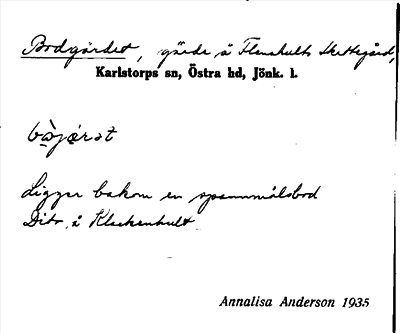 Bodgärdet, gärde å Flenshults Skattegård,
Karlstorps sn, Östra hd, Jönk. l.
Ligger bakom en spannmålsbod
Dito å Klackenhult
Annalisa Anderson 1935